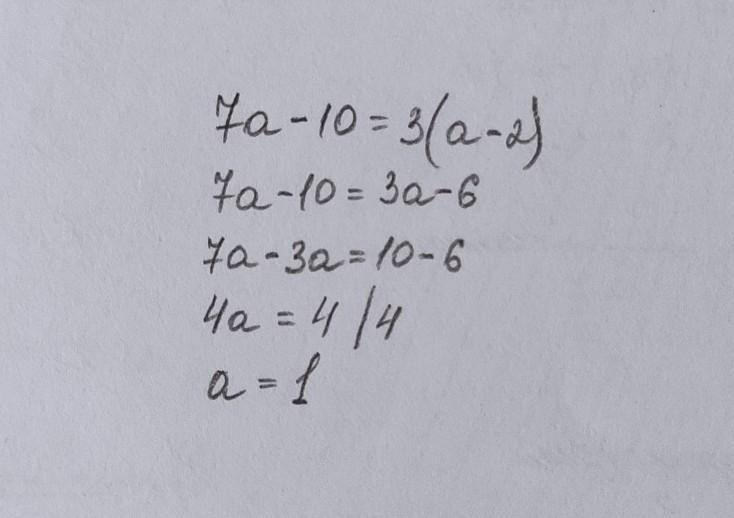 7a-10=3(a-2)
7a-10=3a-6
7a-3a=10-6
4a=4/4
a=1